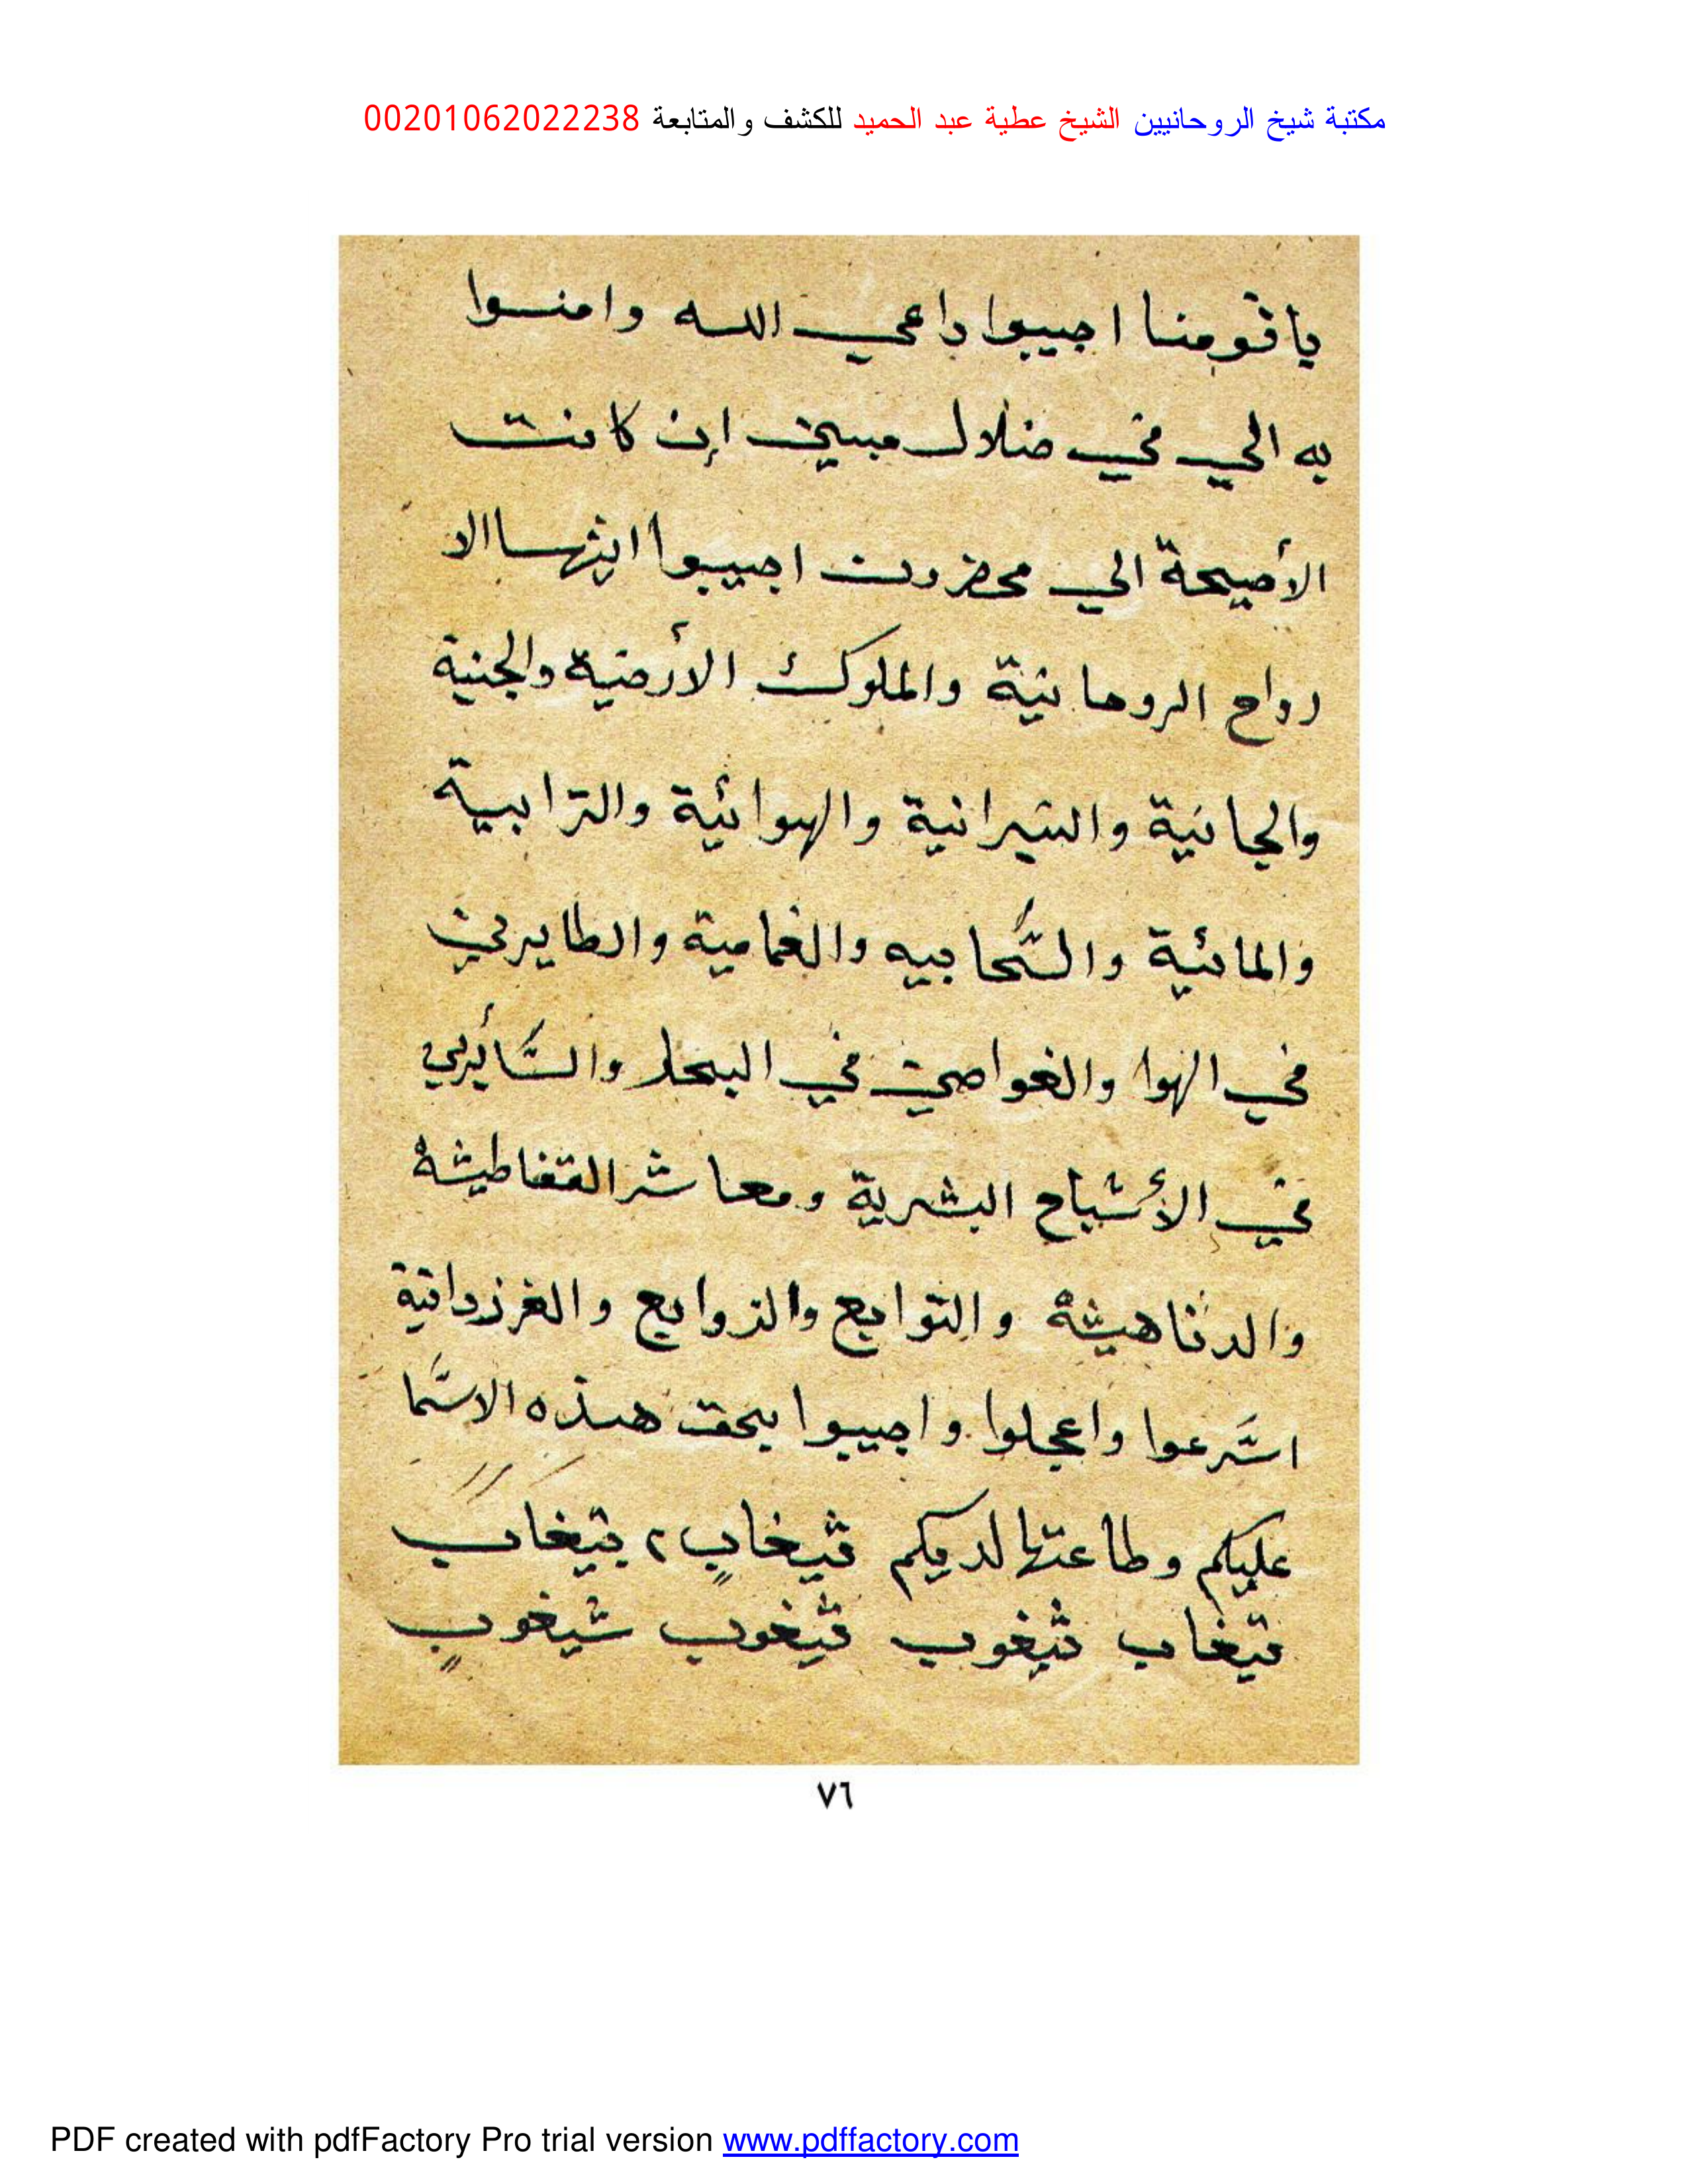 مكتبة شيخ الروحانيين الشيخ عطية عبد الحميد للكشف والمتابعة 00201062022238
يا قومنا اجيبوا داعي الله وامنوا
به الي في ضلال مبين إن كانت
الأصيحة الي محضرون اجيبوا ايثها الا
رواح الروحانية والملوك الأرضية والجنية
والجانية والنيرانية والهوائية والترابية
والمائية والسحابيه والغمامية والطايرين
في الهوا والغواصين في البحار والسايرين
في الأشباح البشرية ومعاشر القفاطيشه
والدناهيشه والتوابع والزوابع والغرزدانية
اسرعوا واعجلوا واجيبوا بحق هذه الاسما
عليكم وطاعتها لديكم
٧٦
PDF created with pdfFactory Pro trial version www.pdffactory.com